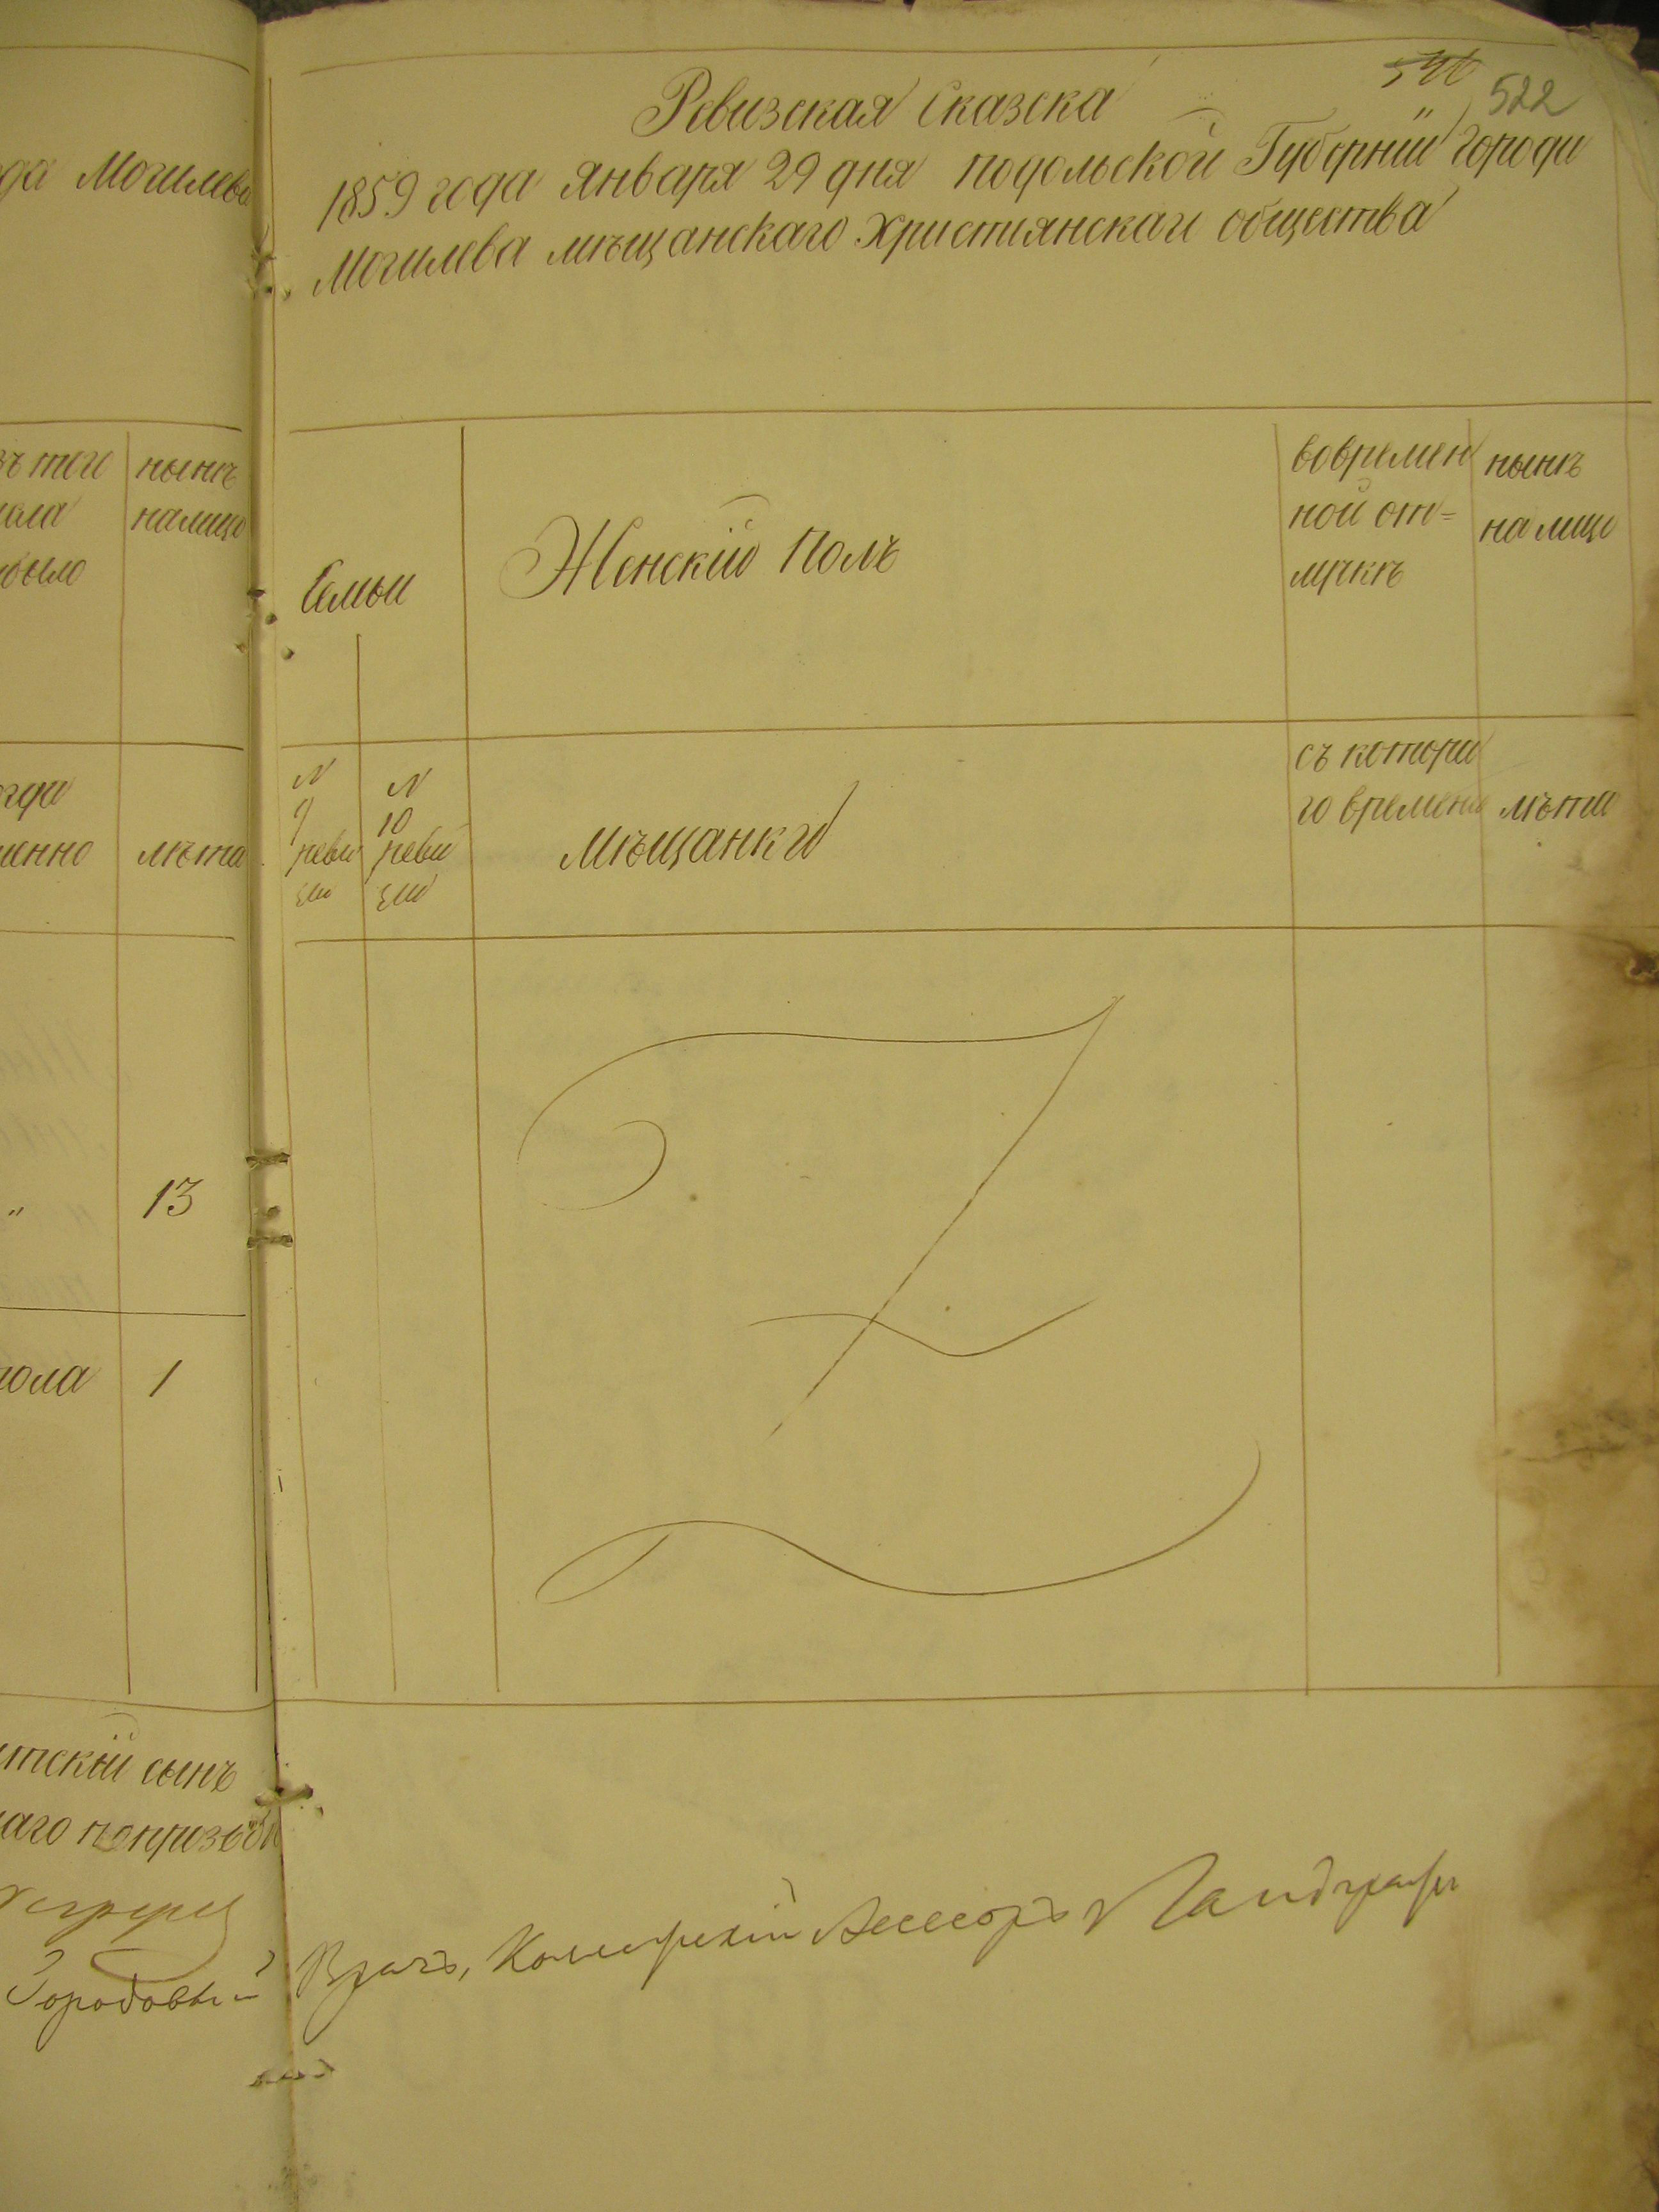 да Могилева
зъ того
нынѣ
налице
было
лѣта
13
1
пола
скій сынъ
Городовый
522
Ревизская Сказска
1859 года января 29 дня подольской Губерніи Города
Могилева мѣщанскаго христіянскаго общества
Семьи
Женскій Полъ
вовремен
ной от=
лучкѣ
нынѣ
на лице
N
9
реви
зіи
N
10
реви
зіи
мѣщанки
съ которо
го времени
лѣта
Врачъ, Коллежскій Асессоръ Ландграфъ